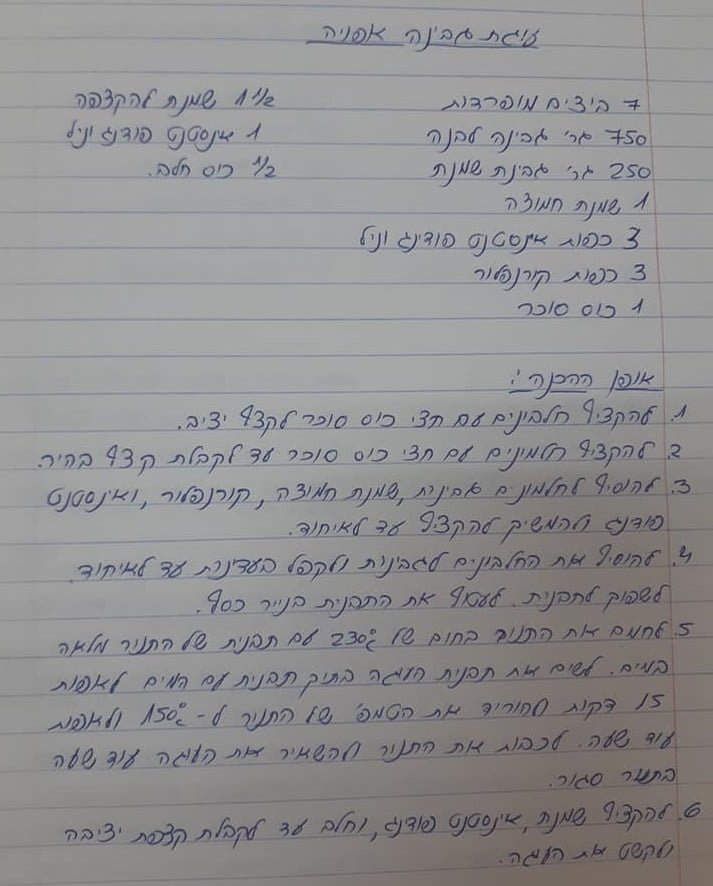 עוגת גבינה אפויה
7 ביצים מופרדות
750 גר' גבינה לבנה
250 גר' גבינת שמנת
1 שמנת חמוצה
3 כפות אינסטנט פודינג וניל
3 כפות קורנפלור
1 כוס סוכר
1 1/2 שמנת להקצפה
1 אינסטנט פודנג וניל
1/2 כוס חלב.
אופן ההכנה:
1. להקציף חלבינים עם חצי כוס סוכר לקצף יציב.
2. להקציף חלמינים עם חצי כוס סוכר עד לקבלת קצף בהיר.
3. להוסיף לחלמונים גבינות, שמנת חמוצה, קורנפלור, ואינסטנט
פודנג ולהמשיך להקציף עד לאיחוד.
4. להוסיף את החלבונים לגבינות ולקפל בעדינות עד לאיחוד.
לשפוך לתבנית. לעטוף את התבנית בנייר כסף.
5. לחמם את התנור בחום של 230°c עם תבנית של התנור מלאה
במים. לשים את תבנית העוגה בתוך תבנית עם המים לאפות
15 דקות ולהוריד את הטמפ' של התנור ל-150°c ולאפות
עוד שעה. לכבות את התנור ולהשאיר את העוגה עוד שעה
בתנור סגור.
6. להקציף שמנת, אינסטנט פודנג, וחלב עד לקבלת קצפת יציבה
ולקשט את העוגה.